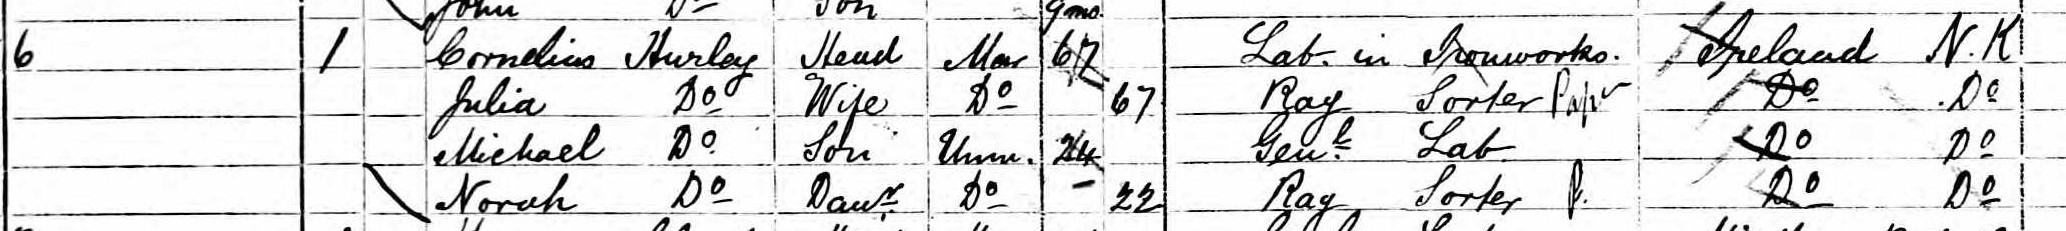 John Do Son 9mo
6 1 Cornelius Hurley Head Mar 67 Lab. in Ironworks. Ireland N.K
Julia Do Wife Do 67 Rag Sorter Paper Do Do
Michael Do Son Unm. 24 Genl Lab Do Do
Norah Do Daur. Do 22 Rag Sorter P. Do Do